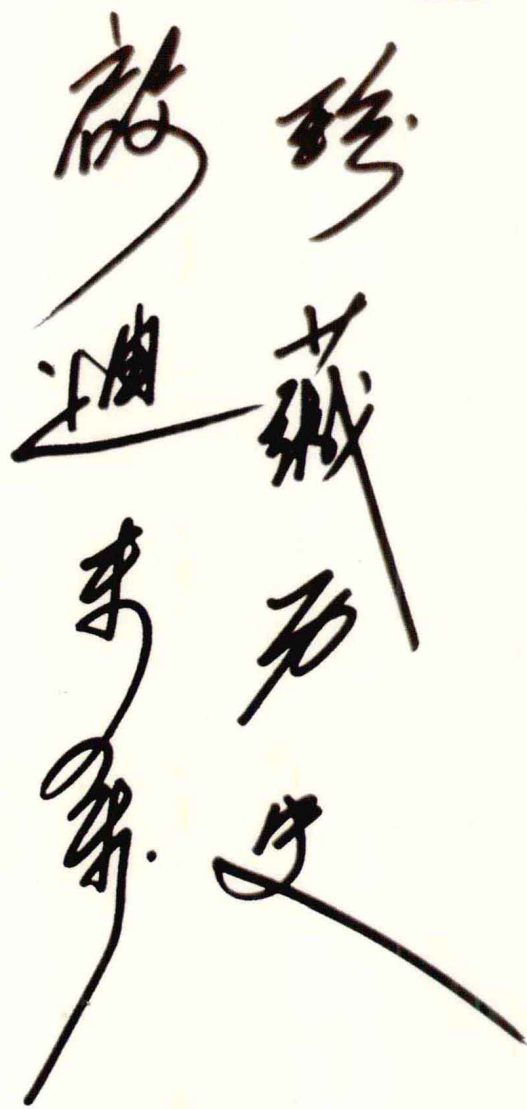 珍藏历史
啟迪未来